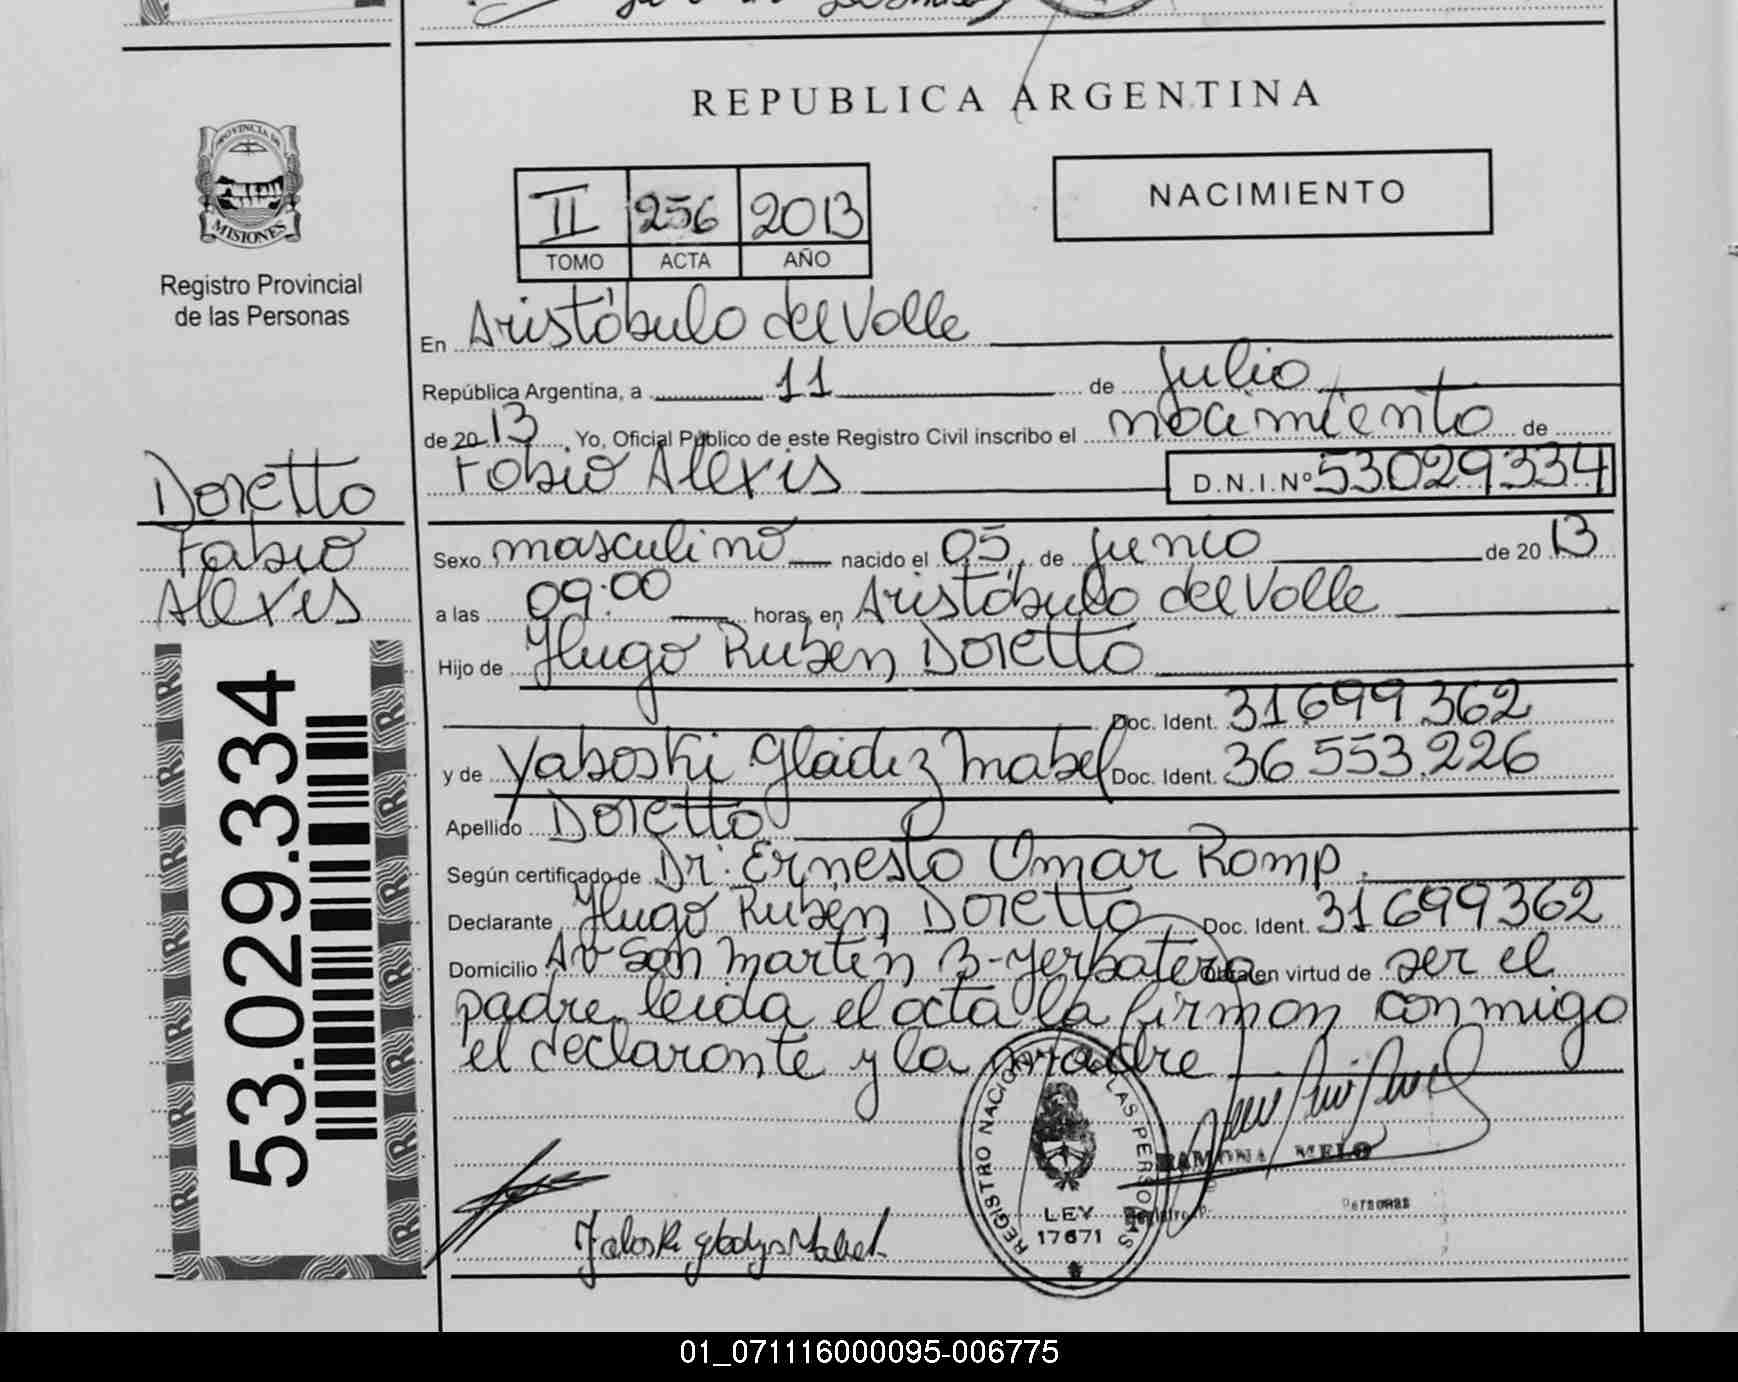 REPUBLICA ARGENTINA
PROVINCIA DE
MISIONES
Registro Provincial
de las Personas
II 256 2013
TOMO ACTA AÑO
NACIMIENTO
En Aristóbulo del Valle
República Argentina, a 11 de julio
de 2013, Yo, Oficial Público de este Registro Civil inscribo el nacimiento de
Fabio Alexis D.N.I.Nº 53029334
Doretto
Fabio
Alexis
Sexo masculino nacido el 05 de junio de 2013
a las 09:00 horas, en Aristóbulo del Valle
Hijo de Hugo Rubén Doretto
Doc. Ident. 31699362
y de Yaboski Gládiz Mabel Doc. Ident. 36553.226
Apellido Doretto
Según certificado de Dr. Ernesto Omar Romp.
Declarante Hugo Rubén Doretto Doc. Ident. 31699362
Domicilio Av San Martín B-Yerbatera Obra en virtud de ser el
padre leida el acta la firman conmigo
el declarante y la madre
53.029.334
REGISTRO NACIONAL DE LAS PERSONAS
LEY
17671
RAMONA MELO
Personas
01_071116000095-006775